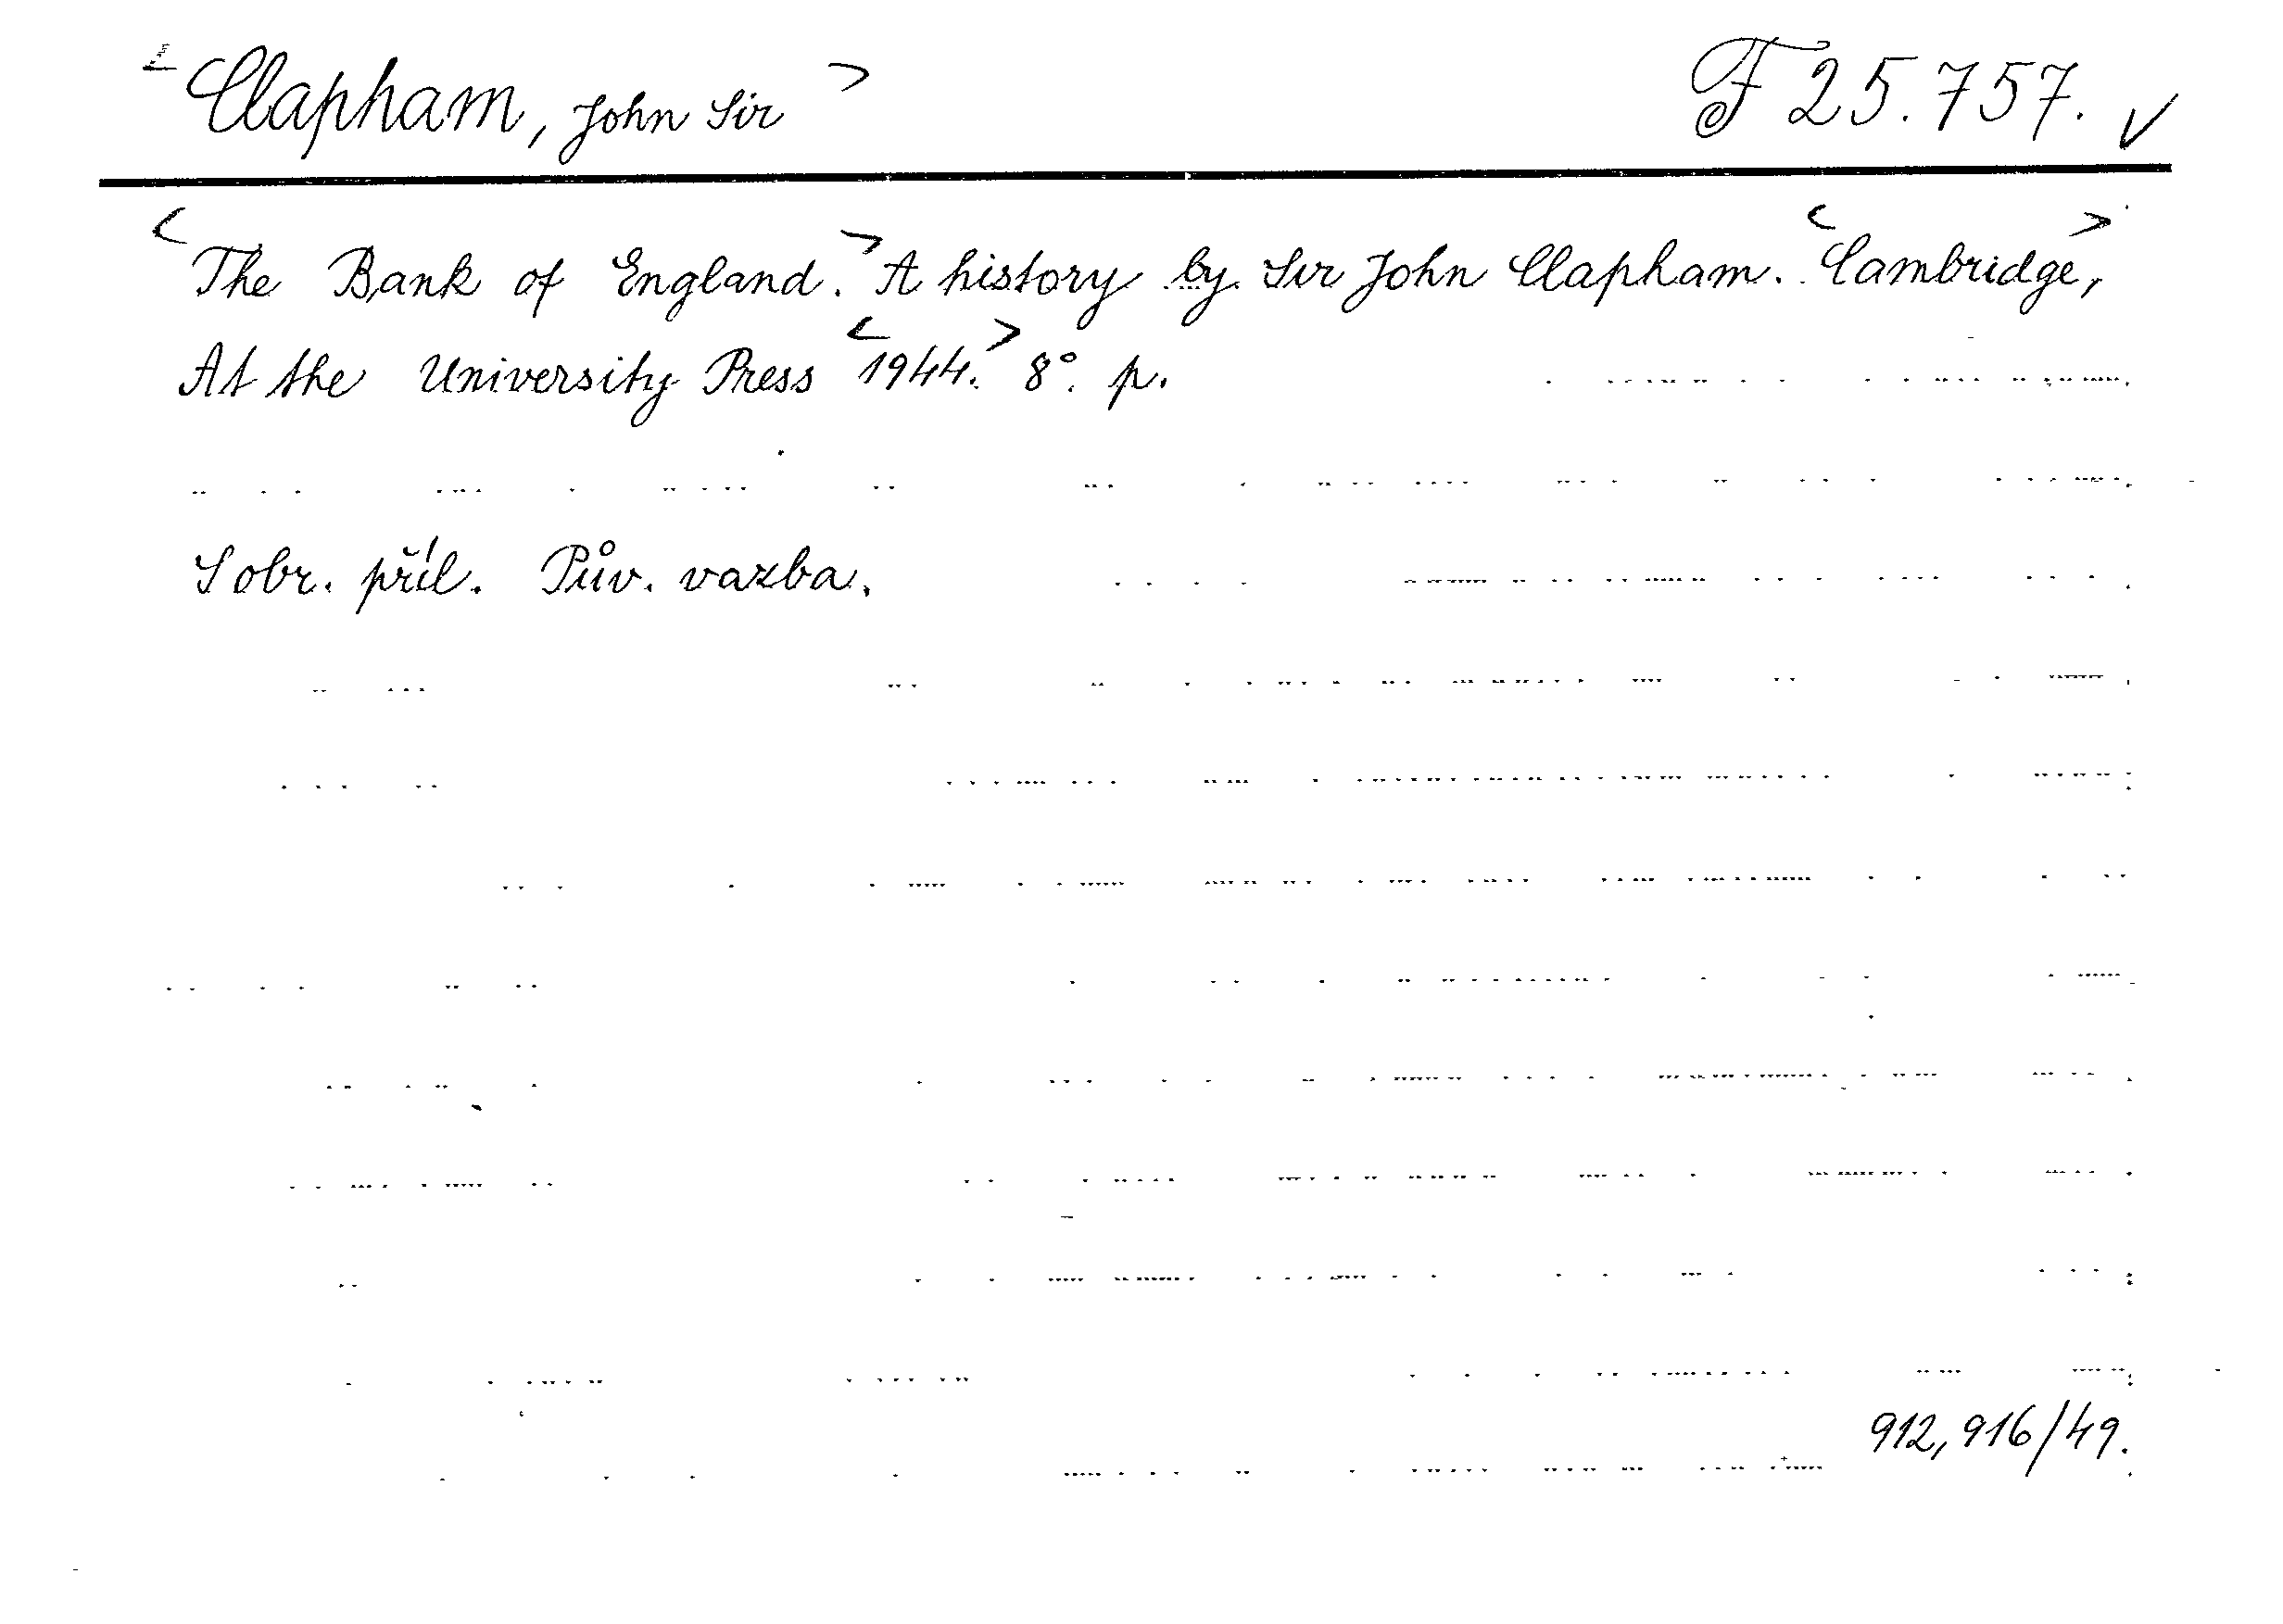 <Clapham, John Sir> F 25.757. ✓
<The Bank of England.> A history by Sir John Clapham. <Cambridge,>
At the University Press <1944.> 8°. p.
S obr. příl. Pův. vazba.
912,916/49.